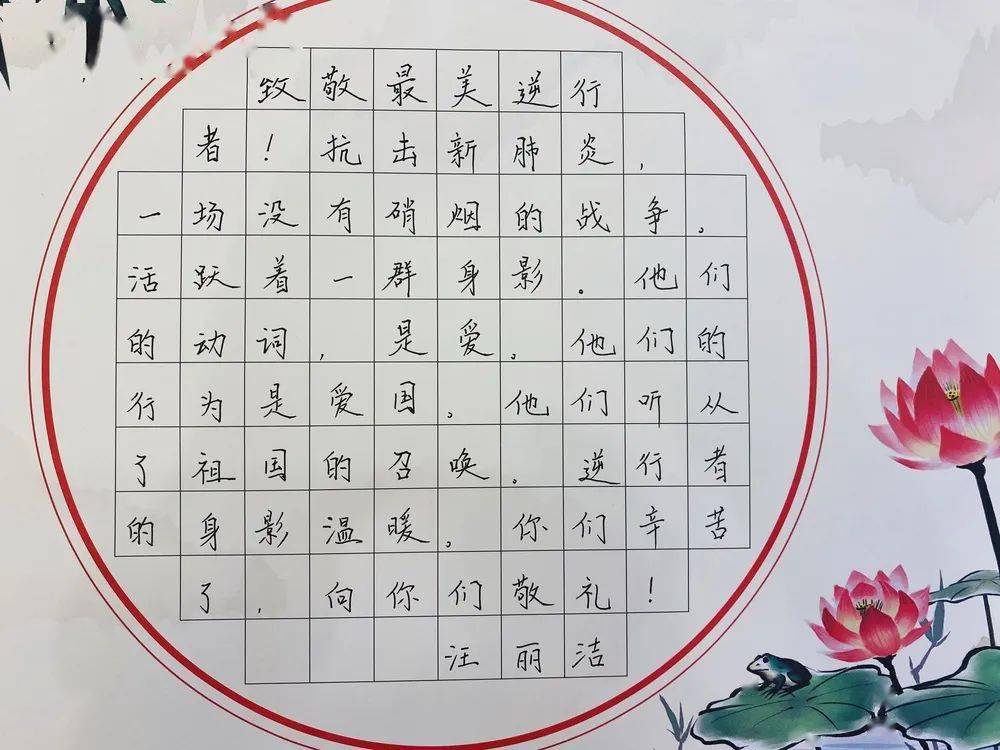 致敬最美逆行
者！抗击新肺炎，
一场没有硝烟的战争。
活跃着一群身影．他们
的动词，是爱。他们的
行为是爱国。他们听从
了祖国的召唤。逆行者
的身影温暖。你们辛苦
了，向你们敬礼！
汪丽洁